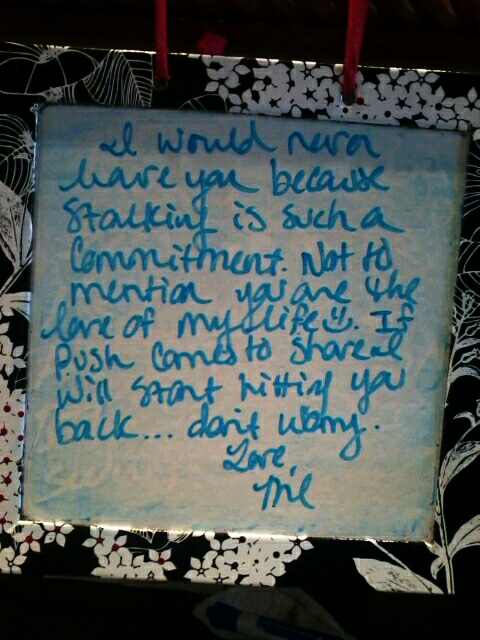 I would never
leave you because
stalking is such a
commitment. Not to
mention you are the
love of my life☺. If
push comes to shove I
will start hitting you
back... don't worry.
Love,
Me